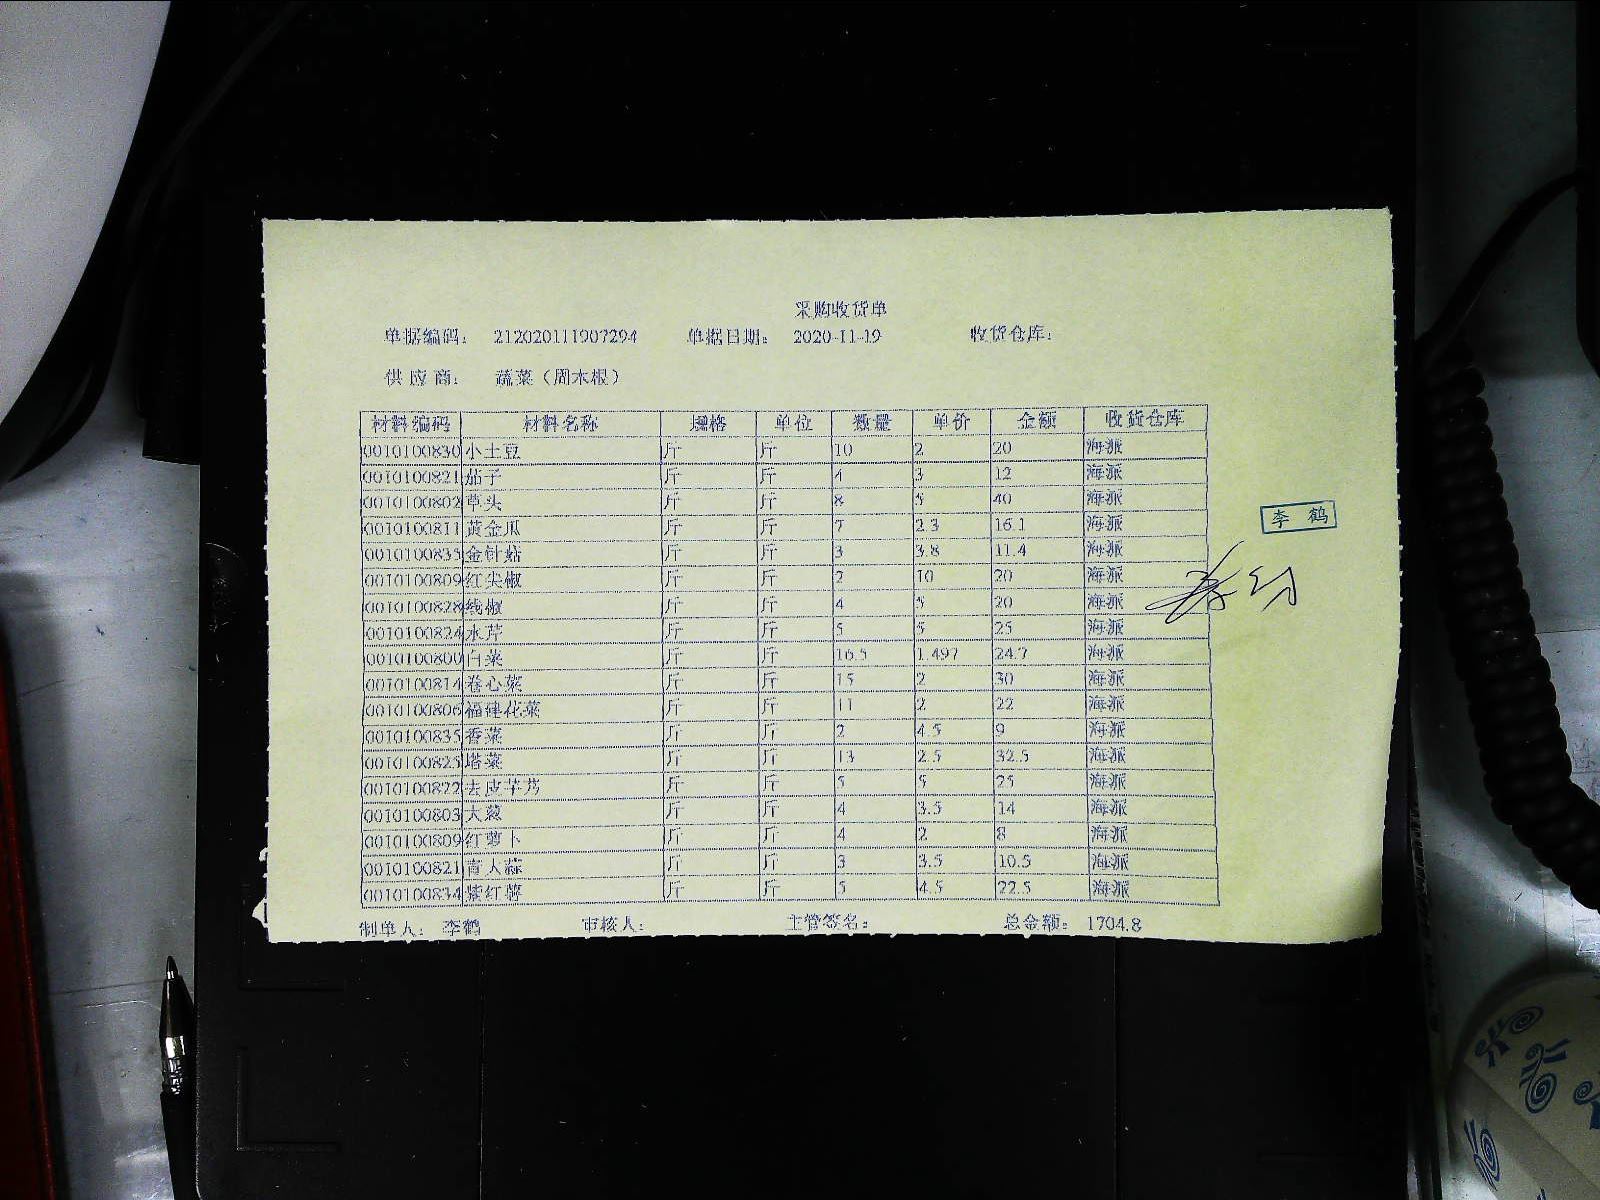 采购收货单
单据编码： 212020111907294 单据日期： 2020-11-19 收货仓库：
供应商： 蔬菜（周木根）
材料编码 材料名称 规格 单位 数量 单价 金额 收货仓库
0010100830 小土豆 斤 斤 10 2 20 海派
0010100821 茄子 斤 斤 4 3 12 海派
0010100802 草头 斤 斤 8 5 40 海派
0010100811 黄金瓜 斤 斤 7 2.3 16.1 海派
0010100835 金针菇 斤 斤 3 3.8 11.4 海派
0010100809 红尖椒 斤 斤 2 10 20 海派
0010100828 线椒 斤 斤 4 5 20 海派
0010100824 水芹 斤 斤 5 5 25 海派
0010100800 白菜 斤 斤 16.5 1.497 24.7 海派
0010100814 卷心菜 斤 斤 15 2 30 海派
0010100806 福建花菜 斤 斤 11 2 22 海派
0010100835 香菜 斤 斤 2 4.5 9 海派
0010100825 塔菜 斤 斤 13 2.5 32.5 海派
0010100822 去皮芋艿 斤 斤 5 5 25 海派
0010100803 大葱 斤 斤 4 3.5 14 海派
0010100809 红萝卜 斤 斤 4 2 8 海派
0010100821 青大蒜 斤 斤 3 3.5 10.5 海派
0010100834 紫红薯 斤 斤 5 4.5 22.5 海派
制单人： 李鹤 审核人： 主管签名： 总金额： 1704.8
李鹤